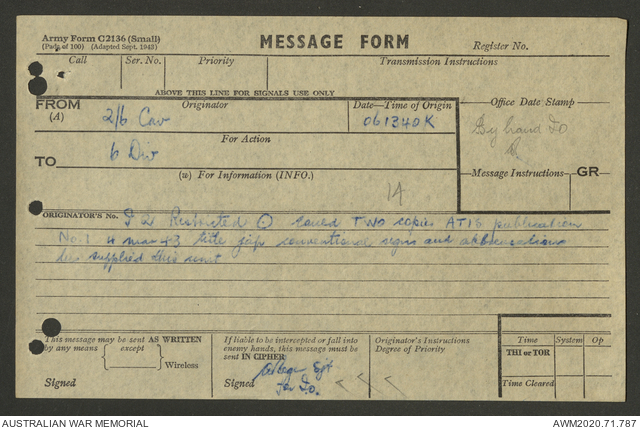 Army Form C2136 (Small)
(Pads of 100) (Adapted Sept. 1943)
MESSAGE FORM
Register No.
Call Ser. No. Priority Transmission Instructions
ABOVE THIS LINE FOR SIGNALS USE ONLY
FROM
(A)
Originator
2/6 Cav
Date—Time of Origin
061340K
Office Date Stamp
By hand IO
TO
For Action
6 Div
(w) For Information (INFO.)
14
Message Instructions GR
ORIGINATOR'S No. I 2 Restricted ⊙ could TWO copies ATIS publication
No. 1 4 mar 43 title jap conventional signs and abbreviations
be supplied this unit
This message may be sent AS WRITTEN
by any means except
Wireless
Signed
If liable to be intercepted or fall into
enemy hands, this message must be
sent IN CIPHER.
Signed Sgt
for I.O.
Originator's Instructions
Degree of Priority
Time System Op
THI or TOR
Time Cleared
AUSTRALIAN WAR MEMORIAL
AWM2020.71.787